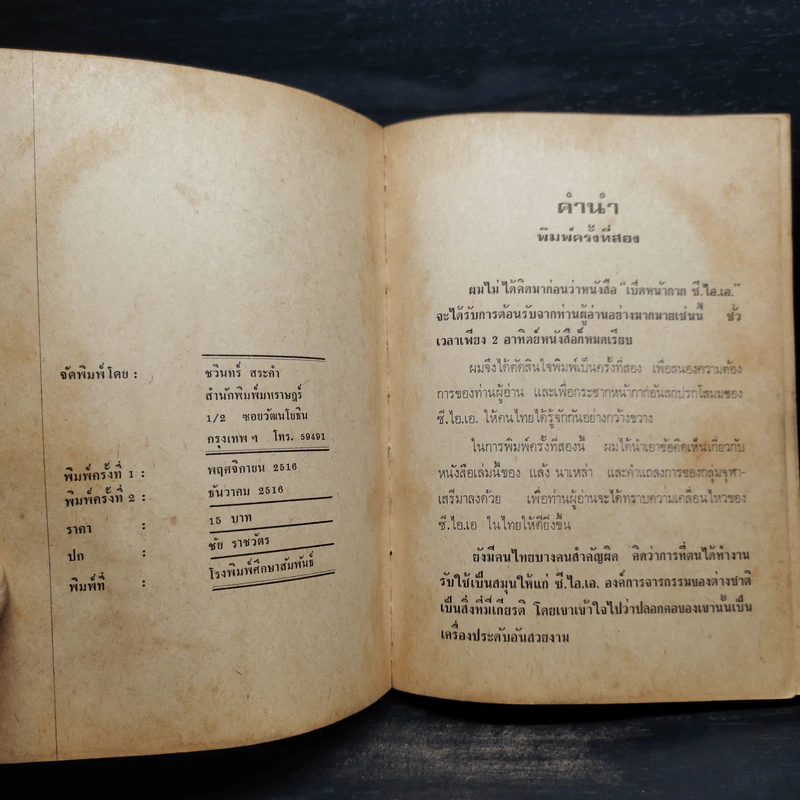 จัดพิมพ์โดย : ชวินทร์ สระคำ
สำนักพิมพ์มหาราษฎร์
1/2 ซอยวัฒนโยธิน
กรุงเทพ ฯ โทร. 59491
พิมพ์ครั้งที่ 1 : พฤศจิกายน 2516
พิมพ์ครั้งที่ 2 : ธันวาคม 2516
ราคา : 15 บาท
ปก : ชัย ราชวัตร
พิมพ์ที่ : โรงพิมพ์ศึกษาสัมพันธ์
คำนำ
พิมพ์ครั้งที่สอง
ผมไม่ได้คิดมาก่อนว่าหนังสือ "เปิดหน้ากาก ซี.ไอ.เอ."
จะได้รับการต้อนรับจากท่านผู้อ่านอย่างมากมายเช่นนี้ ชั่ว
เวลาเพียง 2 อาทิตย์หนังสือก็หมดเรียบ
ผมจึงได้ตัดสินใจพิมพ์เป็นครั้งที่สอง เพื่อสนองความต้อง
การของท่านผู้อ่าน และเพื่อกระชากหน้ากากอันสกปรกโสมมของ
ซี.ไอ.เอ. ให้คนไทยได้รู้จักกันอย่างกว้างขวาง
ในการพิมพ์ครั้งที่สองนี้ ผมได้นำเอาข้อคิดเห็นเกี่ยวกับ
หนังสือเล่มนี้ของ แล้ง นาเหล่า และคำแถลงการของกลุ่มจุฬา-
เสรีมาลงด้วย เพื่อท่านผู้อ่านจะได้ทราบความเคลื่อนไหวของ
ซี.ไอ.เอ ในไทยให้ดียิ่งขึ้น
ยังมีคนไทยบางคนสำคัญผิด คิดว่าการที่ตนได้ทำงาน
รับใช้เป็นสมุนให้แก่ ซี.ไอ.เอ. องค์การจารกรรมของต่างชาติ
เป็นสิ่งที่มีเกียรติ โดยเขาเข้าใจไปว่าปลอกคอของเขานั้นเป็น
เครื่องประดับอันสวยงาม